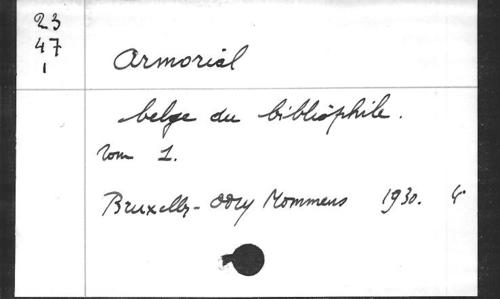 23
47
1
Armorial
belge du bibliophile.
Tom 1.
Bruxelles - Mommens 1930. 4°